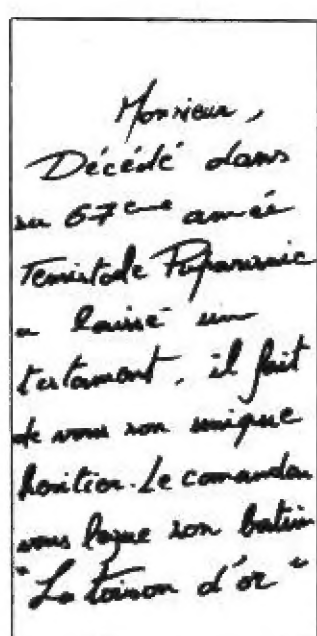 Monsieur,
Décédé dans
sa 67ème année
Temistocle Paparanic
a laissé un
testament, il fait
de vous son unique
héritier. Le comandan
vous lègue son bateau
"La toison d'or"